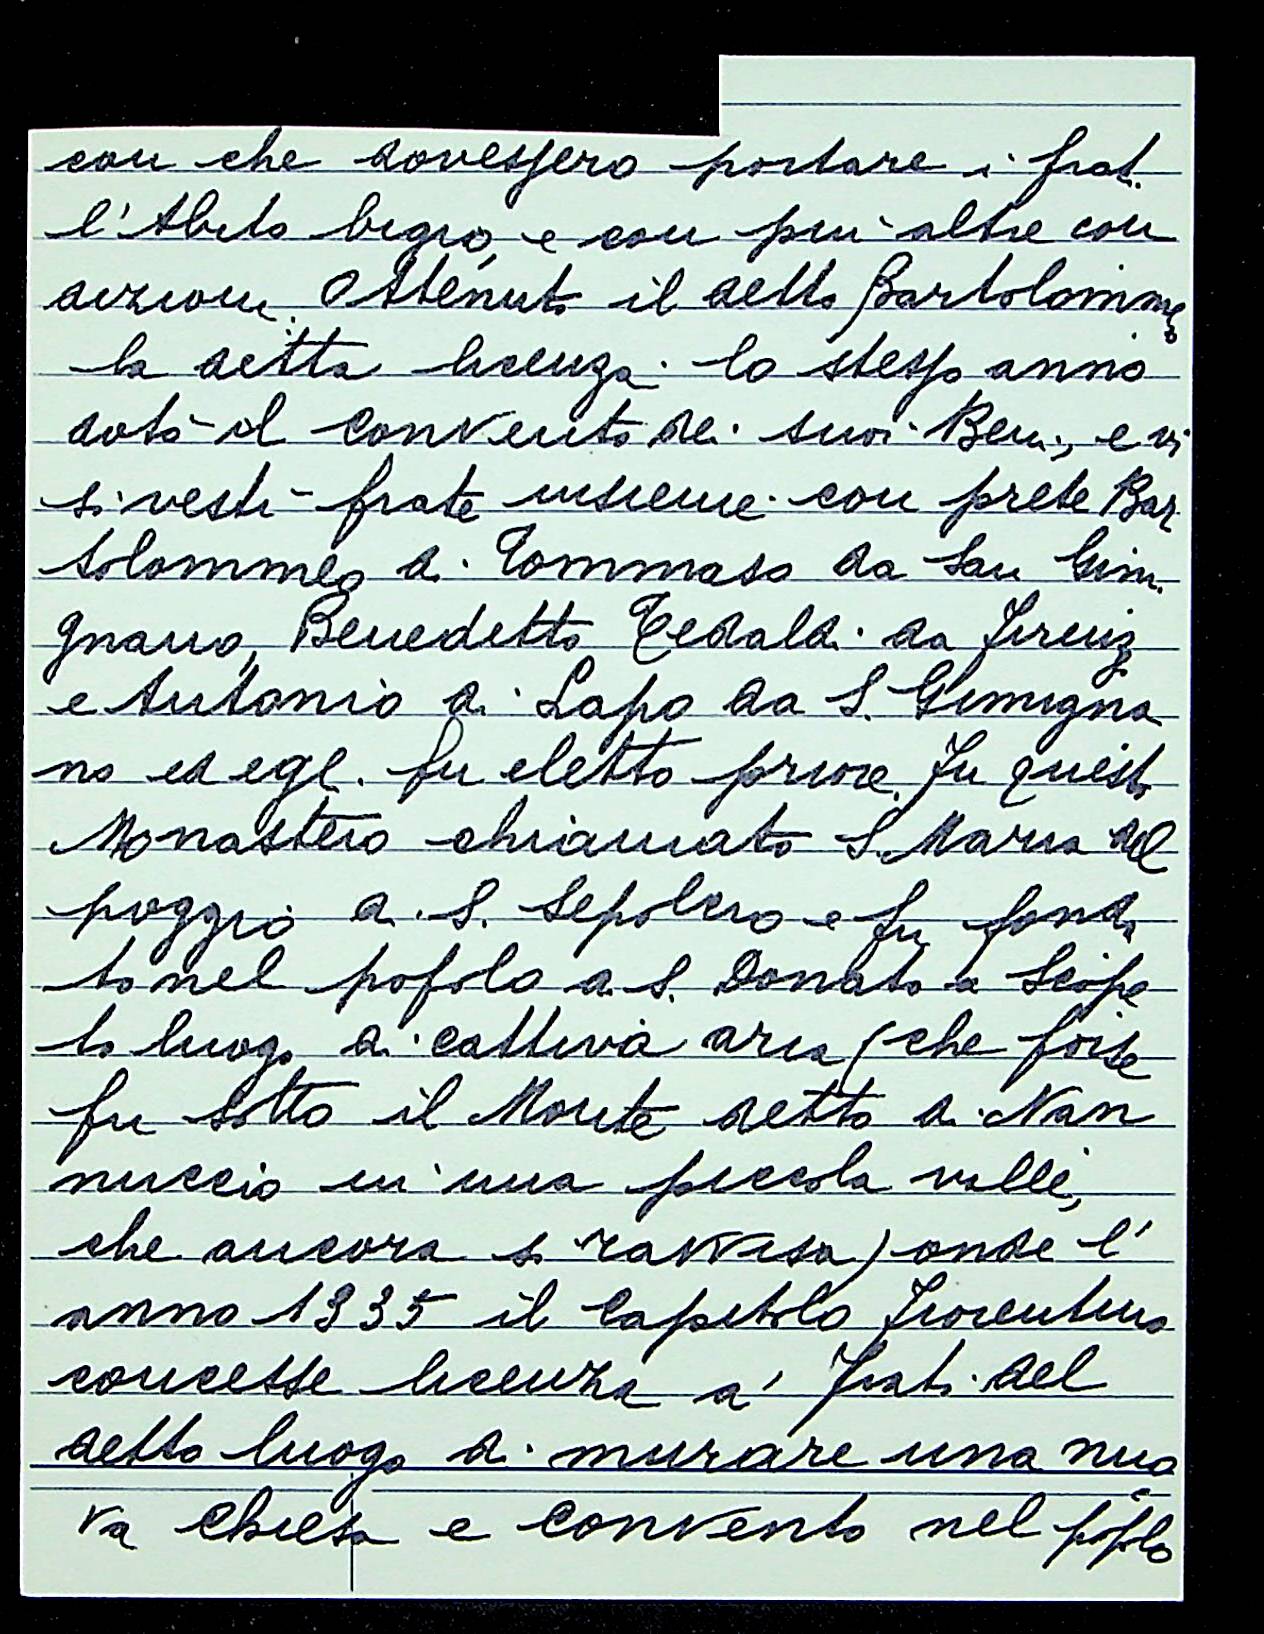 con che dovessero portare i frati
l'Abito bigio, e con più altre con
dizioni. Ottenuto il detto Bartolommeo
la detta licenza. lo stesso anno
dotò il Convento dei suoi Beni, e vi
si vestì frate insieme con prete Bar
tolommeo di Tommaso da San Gimi
gnano, Benedetto Tedaldi da Firenz
e Antonio di Lapo da S. Gimigna
no ed egli fu eletto priore. Fu questo
Monastero chiamato S. Maria del
poggio di S. Sepolcro e fu fonda
to nel popolo di S. Donato a Scope
to luogo di cattiva aria (che forse
fu sotto il Monte detto di Nan
nuccio in una piccola valle,
che ancora si ravvisa) onde l'
anno 1335 il Capitolo Fiorentino
concesse licenza a' Frati del
detto luogo di murare una nuo
va Chiesa e Convento nel popolo